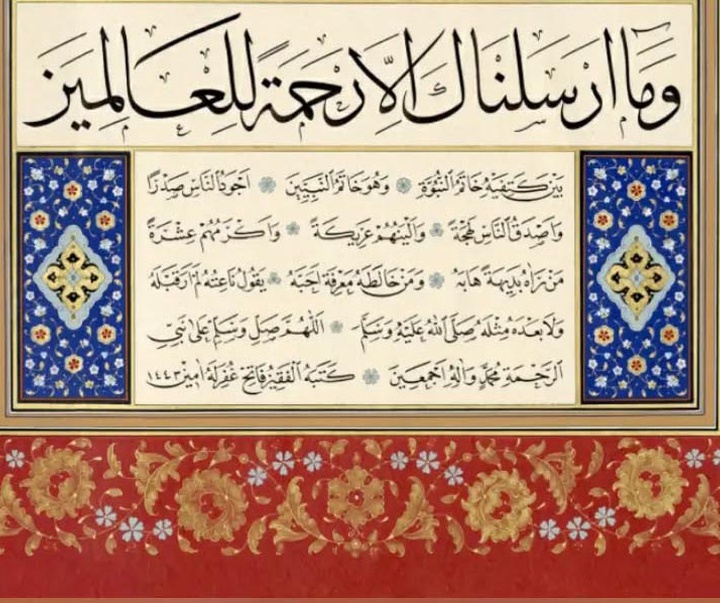 وَمَا اَرْسَلْنَاكَ اِلَّا رَحْمَةً لِلْعَالَمِينَ
بَيْنَ كَتِفَيْهِ خَاتَمُ النُّبُوَّةِ وَهُوَ خَاتَمُ النَّبِيِّينَ اَجْوَدُ النَّاسِ صَدْرًا
وَاَصْدَقُ النَّاسِ لَهْجَةً وَاَلْيَنُهُمْ عَرِيكَةً وَاَكْرَمُهُمْ عِشْرَةً
مَنْ رَاٰهُ بَدِيهَةً هَابَهُ وَمَنْ خَالَطَهُ مَعْرِفَةً اَحَبَّهُ يَقُولُ نَاعِتُهُ لَمْ اَرَ قَبْلَهُ
وَلَا بَعْدَهُ مِثْلَهُ صَلَّى اللّٰهُ عَلَيْهِ وَسَلَّمَ اَللّٰهُمَّ صَلِّ وَسَلِّمْ عَلٰى نَبِيِّ
الرَّحْمَةِ مُحَمَّدٍ وَاٰلِهِ اَجْمَعِينَ كَتَبَهُ الْفَقِيرُ فَاتِح غُفِرَ لَهُ اٰمِين ١٤٤٣